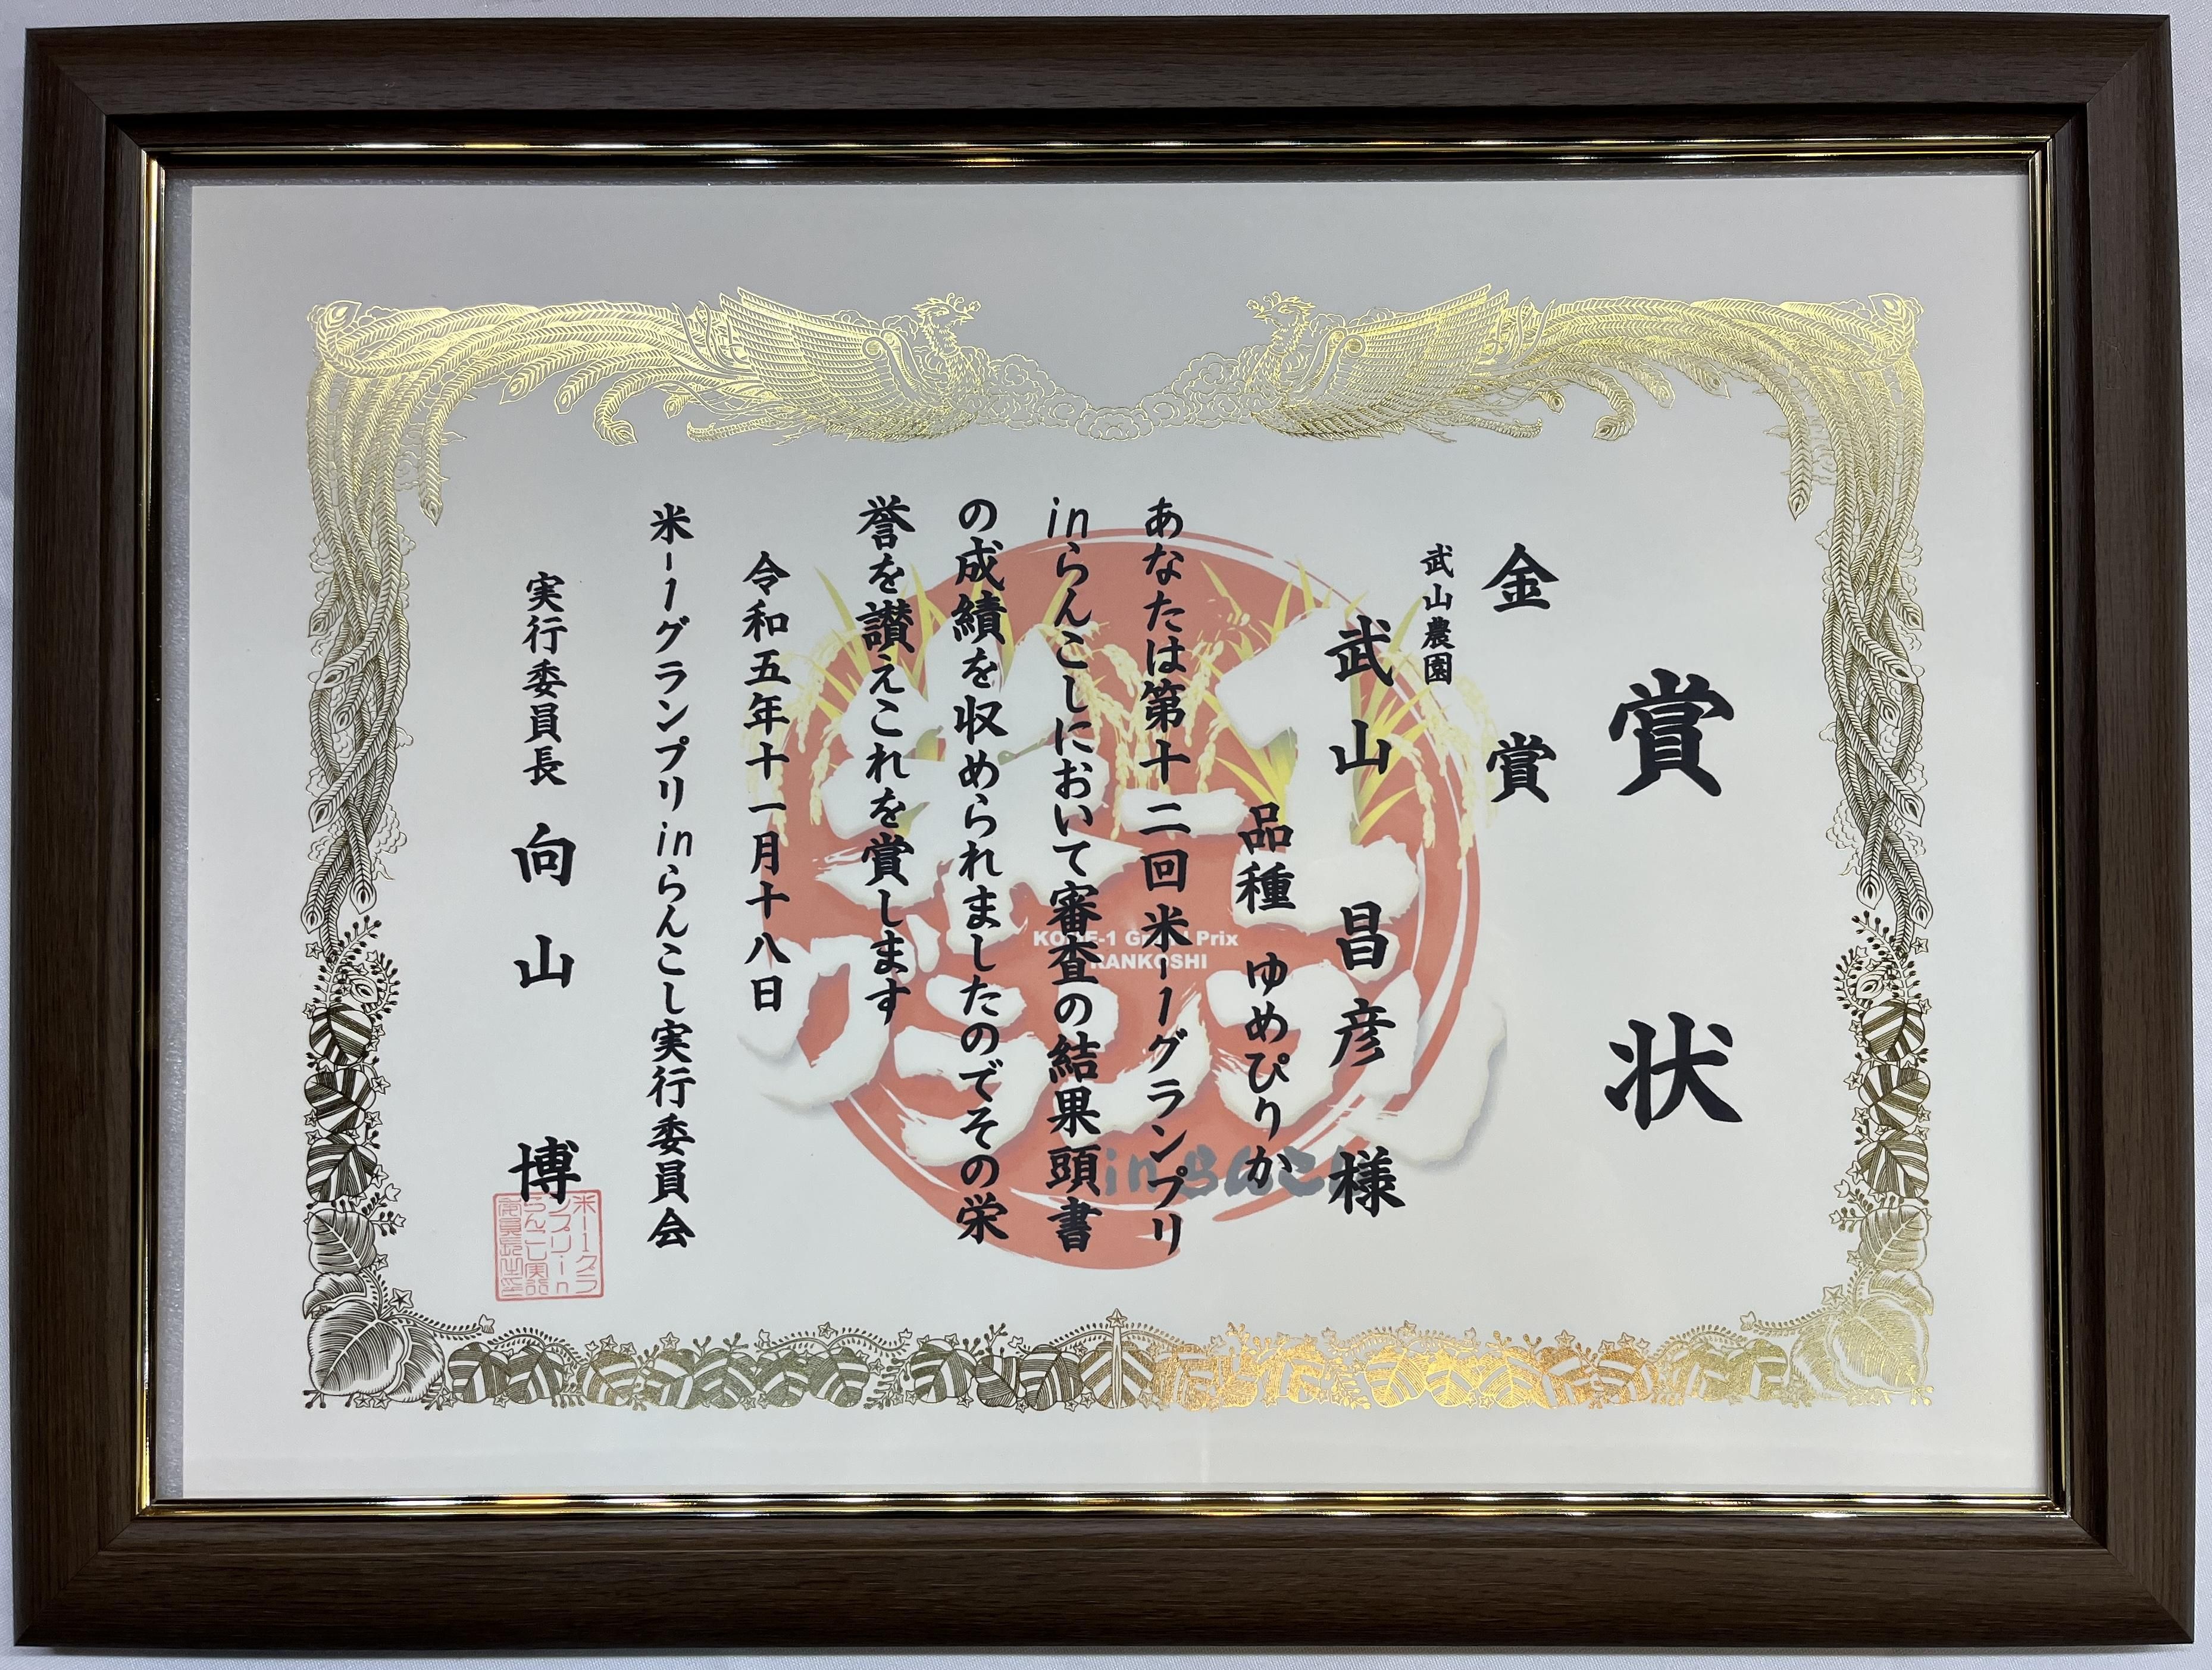 賞状
金賞
武山農園
武山昌彦様
品種 ゆめぴりか
あなたは第十二回米-1グランプリ
inらんこしにおいて審査の結果頭書
の成績を収められましたのでその栄
誉を讃えこれを賞します
令和五年十一月十八日
米-1グランプリinらんこし実行委員会
実行委員長 向山 博
米-1グラ
ンプリin
らんこし実行
委員長之印
Prix
RANKOSHI
inらんこ